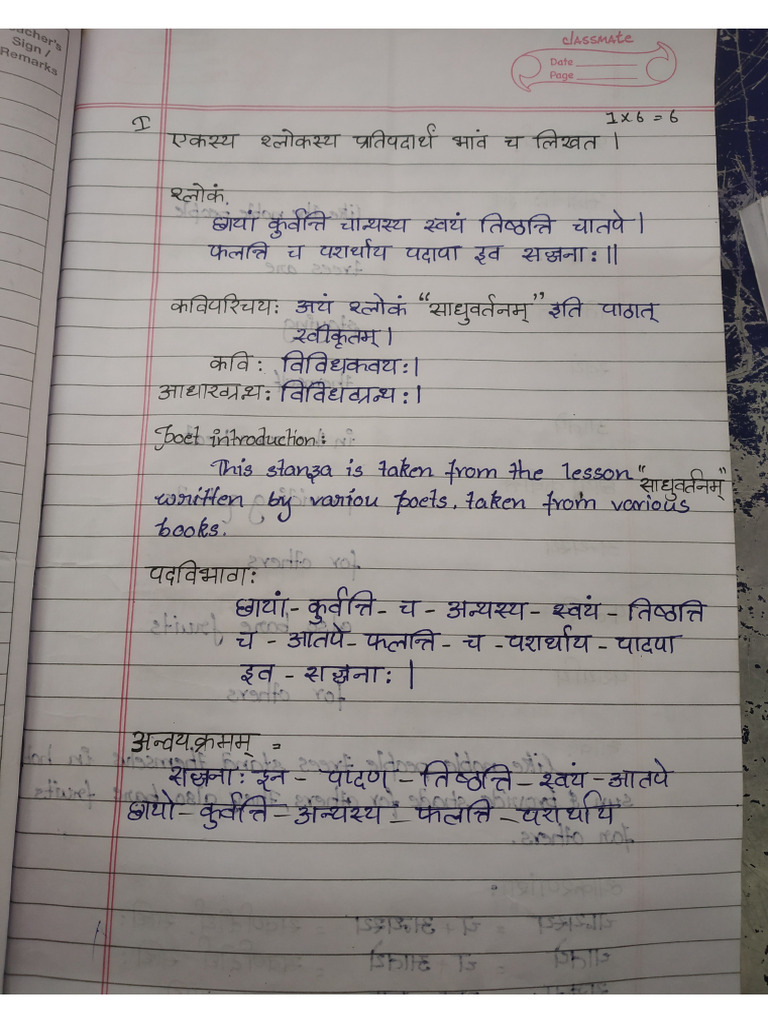 Teacher's
Sign /
Remarks
classmate
Date
Page
I
1 x 6 = 6
एकस्य श्लोकस्य प्रतिपदार्थं भावं च लिखत ।
श्लोकं.
छायां कुर्वन्ति चान्यस्य स्वयं तिष्ठन्ति चातपे ।
फलन्ति च परार्थाय पदापा इव सज्जनाः ॥
कविपरिचयः अयं श्लोकं "साधुवर्तनम्" इति पाठात्
स्वीकृतम् ।
कविः विविधकवयः ।
आधारग्रन्थः विविधग्रन्थः ।
Poet introduction:
This stanza is taken from the lesson "साधुवर्तनम्"
written by variou poets, taken from various
books.
पदविभागः
छायां - कुर्वन्ति - च - अन्यस्य - स्वयं - तिष्ठन्ति
च - आतपे - फलन्ति - च - परार्थाय - पादपा
इव - सज्जनाः |
अन्वय.क्रमम् =
सज्जनाः इन - पांदण - तिष्ठन्ति - स्वयं - आतपे
छायो - कुर्वन्ति - अन्यस्य - फलन्ति - परार्थाय